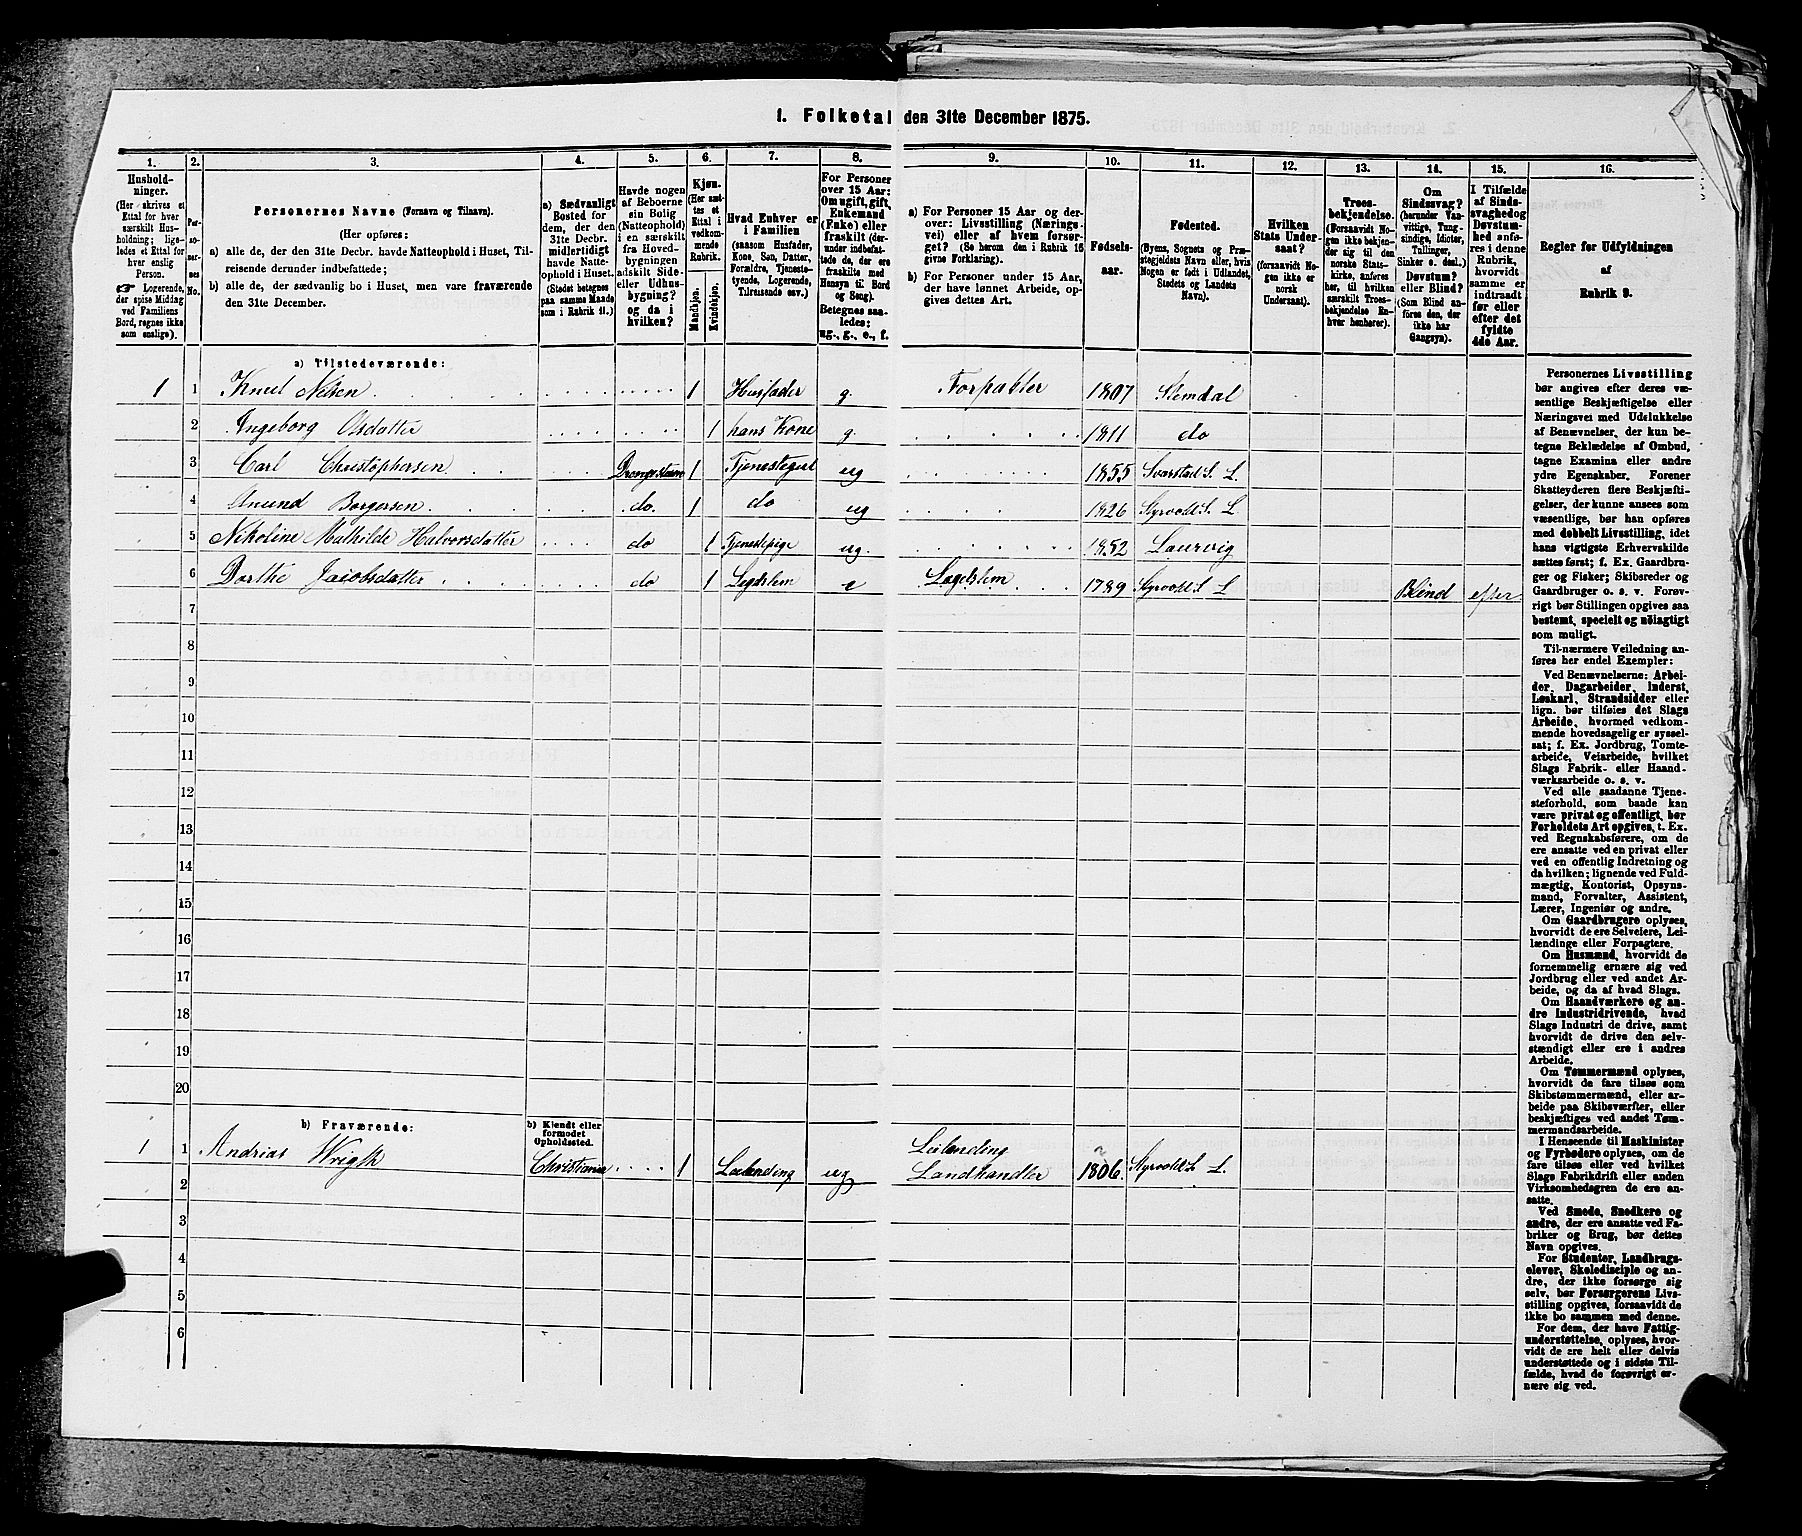 1. Folketal den 31te December 1875.
1. 2. 3. 4. 5. 6. 7. 8. 9. 10. 11. 12. 13. 14. 15. 16.
Hushold-
ninger.
(Her skrives et
Ettal for hver
særskilt Hus-
holdning; lige-
ledes et Ettal for
hver enslig
Person.
☛ Logerende,
der spise Middag
ved Familiens
Bord, regnes ikke
som enslige).
Per-
so-
ner-
nes
No.
Personernes Navne (Fornavn og Tilnavn).
(Her opføres:
a) alle de, der den 31te Decbr. havde Natteophold i Huset, Til-
reisende derunder indbefattede;
b) alle de, der sædvanlig bo i Huset, men vare fraværende
den 31te December.
a) Sædvanligt
Bosted for
dem, der den
31te Decbr.
midlertidigt
havde Natte-
ophold i Huset.
(Stedet betegnes
paa samme Maade
som i Rubrik 11.)
Havde nogen
af Beboerne
sin Bolig
(Natteophold)
i en særskilt
fra Hoved-
bygningen
adskilt Side-
eller Udhus-
bygning?
og da i
hvilken?
Kjøn.
(Her sæt-
tes et
Ettal i
vedkom-
mende
Rubrik.
Mandkjøn.
Kvindekjøn.
Hvad Enhver er
i Familien
(saasom Husfader,
Kone, Søn, Datter,
Forældre, Tjeneste-
tyende, Logerende,
Tilreisende osv.)
For Personer
over 15 Aar:
Om ugift, gift,
Enkemand
(Enke) eller
fraskilt (der-
under indbefat-
tede de, der ere
fraskilte med
Hensyn til Bord
og Seng).
Betegnes saa-
ledes:
ug., g., e., f.
a) For Personer 15 Aar og der-
over: Livsstilling (Nærings-
vei) eller af hvem forsør-
get? (Se herom den i Rubrik 16
givne Forklaring).
b) For Personer under 15 Aar,
der have lønnet Arbeide, op-
gives dettes Art.
Fødsels-
aar.
Fødested.
(Byens, Sognets og Præ-
stegjeldets Navn eller, hvis
Nogen er født i Udlandet,
Stedets og Landets
Navn).
Hvilken
Stats Under-
saat?
(forsaavidt No-
gen ikke er
norsk
Undersaat).
Troes-
bekjendelse.
(Forsaavidt No-
gen ikke bekjen-
der sig til den
norske Stats-
kirke, anføres
her, til hvilken
særskilt Troes-
bekjendelse En-
hver henhører).
Om
Sindssvag?
(herunder Van-
vittige, Tung-
sindige, Idioter,
Tullinger,
Sinker o. desl.)
Døvstum?
eller Blind?
(Som Blind an-
føres den, der
ikke har
Gangsyn).
I Tilfælde
af Sinds-
svaghed og
Døvstum-
hed anfø-
res i denne
Rubrik,
hvorvidt
samme er
indtraadt
før eller
efter det
fyldte
4de Aar.
Regler for Udfyldningen
af
Rubrik 9.
a) Tilstedeværende:
1 1 Knud Nilsen 1 Husfader g. Forpakter 1807 Slemdal
2 Ingeborg Olsdatter 1 hans Kone g 1811 do
3 Carl Christophersen 1 ug 1855 Svarstad S. L.
4 Anund Borgersen do. 1 do ug 1826 S. L
5 Nikoline Mathilde Halvorsdatter do 1 Tjenestepige ug. 1852 Laurvig
6 Dorthe Jacobsdatter do 1 Lægdslem e Lægdslem 1789 S L Blind efter
7
8
9
10
11
12
13
14
15
16
17
18
19
20
b) Fraværende:
b) Kjendt eller
formodet
Opholdssted.
1 1 Andrias Christiania 1 ug Leilending
Landhandler 1806. S. L.
2
3
4
5
6
Personernes Livsstilling
bør angives efter deres væ-
sentlige Beskjæftigelse eller
Næringsvei med Udelukkelse
af Benævnelser, der kun be-
tegne Beklædelse af Ombud,
tagne Examina eller andre
ydre Egenskaber. Forener
Skatteyderen flere Beskjæfti-
gelser, der kunne ansees som
væsentlige, bør han opføres
med dobbelt Livsstilling, idet
hans vigtigste Erhvervskilde
sættes først; f. Ex. Gaardbru-
ger og Fisker; Skibsreder og
Gaardbruger o. s. v. Forøv-
rigt bør Stillingen opgives saa
bestemt, specielt og nöiagtigt
som muligt.
Til nærmere Veiledning an-
føres her endel Exempler:
Ved Benævnelserne: Arbei-
der, Dagarbeider, Inderst,
Løskarl, Strandsidder eller
lign. bør tilføies det Slags
Arbeide, hvormed vedkom-
mende hovedsagelig er syssel-
sat; f. Ex. Jordbrug, Tomte-
arbeide, Veiarbeide, hvilket
Slags Fabrik- eller Haand-
værksarbeide o. s. v.
Ved alle saadanne Tjene-
steforhold, som baade kan
være privat og offentligt, bør
Forholdets Art opgives, t. Ex.
ved Regnskabsførere, om de
ere ansatte ved en privat eller
ved en offentlig Indretning og
da hvilken; lignende ved Fuld-
mægtig, Kontorist, Opsyns-
mand, Forvalter, Assistent,
Lærer, Ingeniør og andre.
Om Gaardbrugere oplyses,
hvorvidt de ere Selveiere, Lei-
lændinge eller Forpagtere.
Om Husmænd, hvorvidt de
fornemmelig ernære sig ved
Jordbrug eller ved andet Ar-
beide, og da af hvad Slags.
Om Haandværkere og an-
dre Industridrivende, hvad
Slags Industri de drive, samt
hvorvidt de drive den selv-
stændigt eller ere i andres
Arbeide.
Om Tømmermænd oplyses,
hvorvidt de fare tilsøs som
Skibstømmermænd, eller ar-
beide paa Skibsværfter, eller
beskjæftiges ved andet Tøm-
mermandsarbeide.
I Henseende til Maskinister
og Fyrbødere oplyses, om de
fare tilsøs eller ved hvilket
Slags Fabrikdrift eller anden
Virksomhedsgren de ere an-
satte.
Ved Smede, Snedkere og
andre, der ere ansatte ved Fa-
briker og Brug, bør dettes
Navn opgives.
For Studenter, Landbrugs-
elever, Skoledisciple og an-
dre, der ikke forsørge sig
selv, bør Forsørgerens Livs-
stilling opgives, forsaavidt de
ikke bo sammen med denne.
For dem, der have Fattig-
understøttelse, oplyses, hvor-
vidt de ere helt eller delvis
understøttede og i sidste Til-
fælde, hvad de forøvrigt er-
nære sig ved.